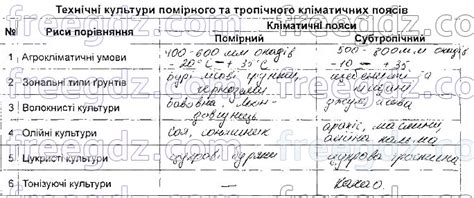 Технічні культури помірного та тропічного кліматичних поясів
№ Риси порівняння Кліматичні пояси
Помірний Субтропічний
1 Агрокліматичні умови 400-600 мм опадів 500-800мм опадів
-20°C - +35°C -10 - +35
2 Зональні типи ґрунтів бурі лісові ґрунти,
чорноземи
3 Волокнисті культури бавовна, льон-
довгунець джут
4 Олійні культури соя, соняшник арахіс, маслини,
олійна пальма
5 Цукристі культури цукрові буряки цукрова тростина
6 Тонізуючі культури — какао.